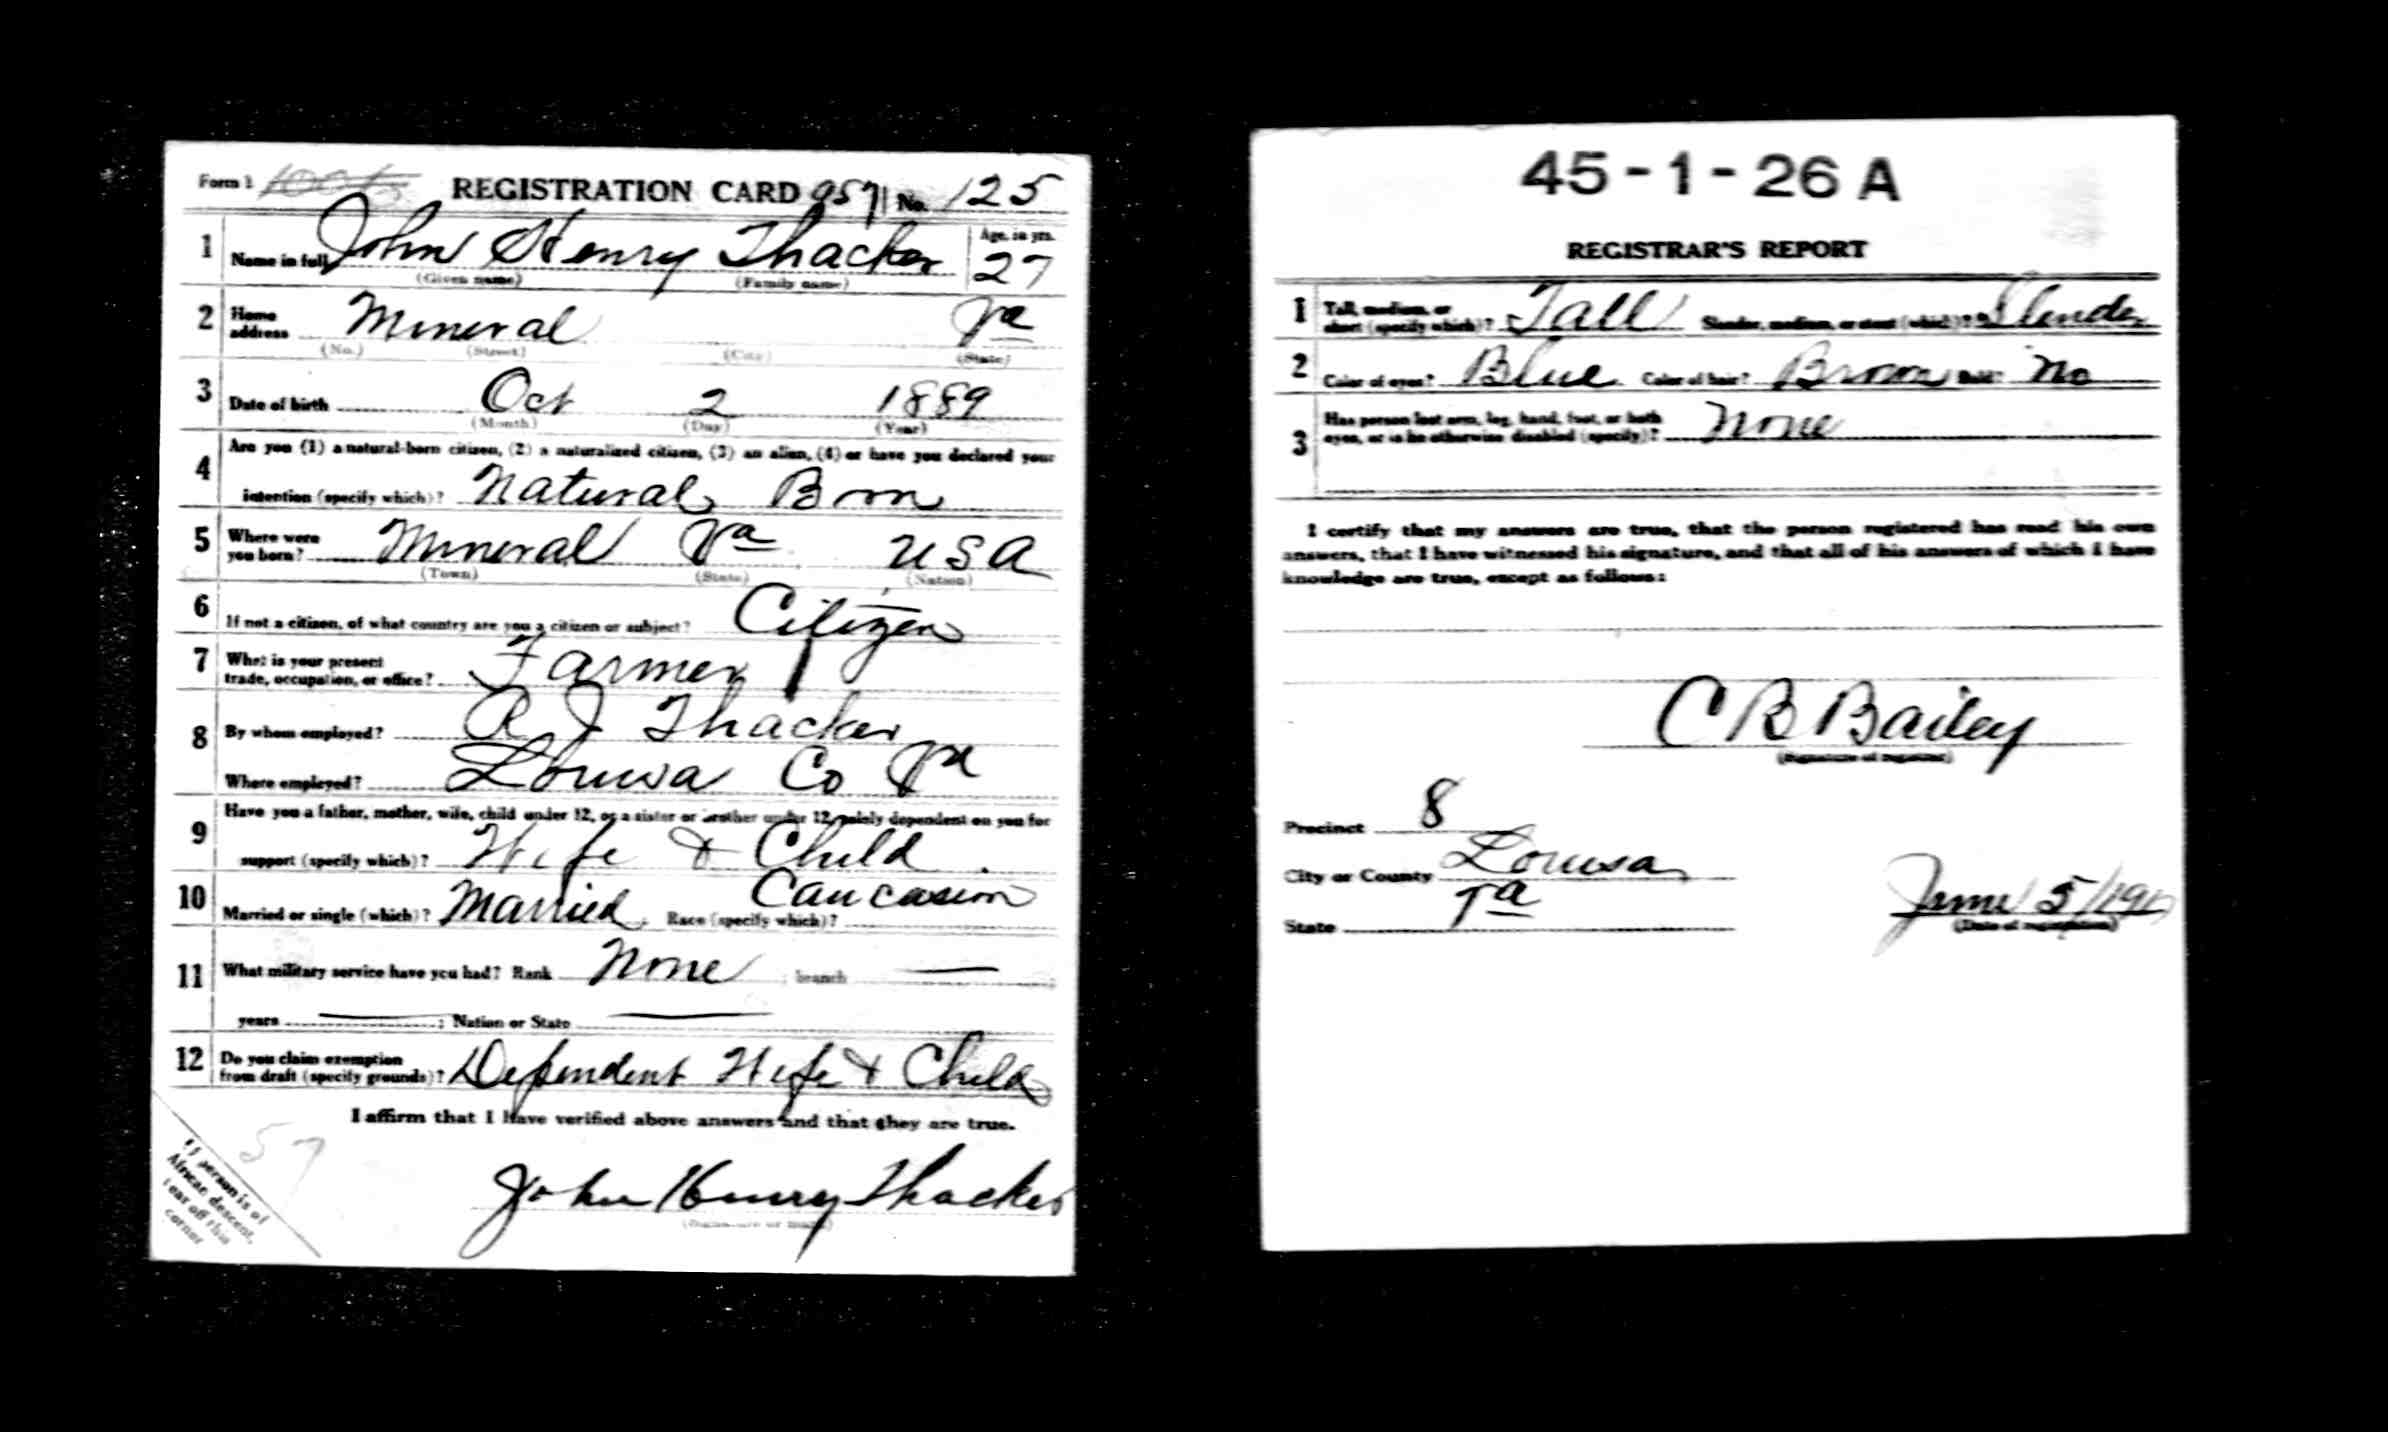 Form 1 REGISTRATION CARD 957 No. 125
1 Name in full John Henry Thacker Age, in yrs. 27
(Given name) (Family name)
2 Home address Mineral Va
(No.) (Street) (City) (State)
3 Date of birth Oct 2 1889
(Month) (Day) (Year)
4 Are you (1) a natural-born citizen, (2) a naturalized citizen, (3) an alien, (4) or have you declared your
intention (specify which)? Natural Born
5 Where were you born? Mineral Va USA
(Town) (State) (Nation)
6 If not a citizen, of what country are you a citizen or subject? Citizen
7 What is your present trade, occupation, or office? Farmer
8 By whom employed? R J Thacker
Where employed? Louisa Co Va
9 Have you a father, mother, wife, child under 12, or a sister or brother under 12, solely dependent on you for
support (specify which)? Wife & Child
10 Married or single (which)? Married Race (specify which)? Caucasion
11 What military service have you had? Rank None ; branch —
years — ; Nation or State —
12 Do you claim exemption from draft (specify grounds)? Dependent Wife & Child
I affirm that I have verified above answers and that they are true.
John Henry Thacker
(Signature or mark)
57
If person is of
African descent,
tear off this
corner
45-1-26 A
REGISTRAR'S REPORT
1 Tall, medium, or short (specify which)? Tall Slender, medium, or stout (which)? Slender
2 Color of eyes? Blue Color of hair? Brown Bald? No
3 Has person lost arm, leg, hand, foot, or both
eyes, or is he otherwise disabled (specify)? None
I certify that my answers are true, that the person registered has read his own
answers, that I have witnessed his signature, and that all of his answers of which I have
knowledge are true, except as follows:
C B Bailey
(Signature of registrar)
Precinct 8
City or County Louisa
State Va
June 5/1917
(Date of registration)